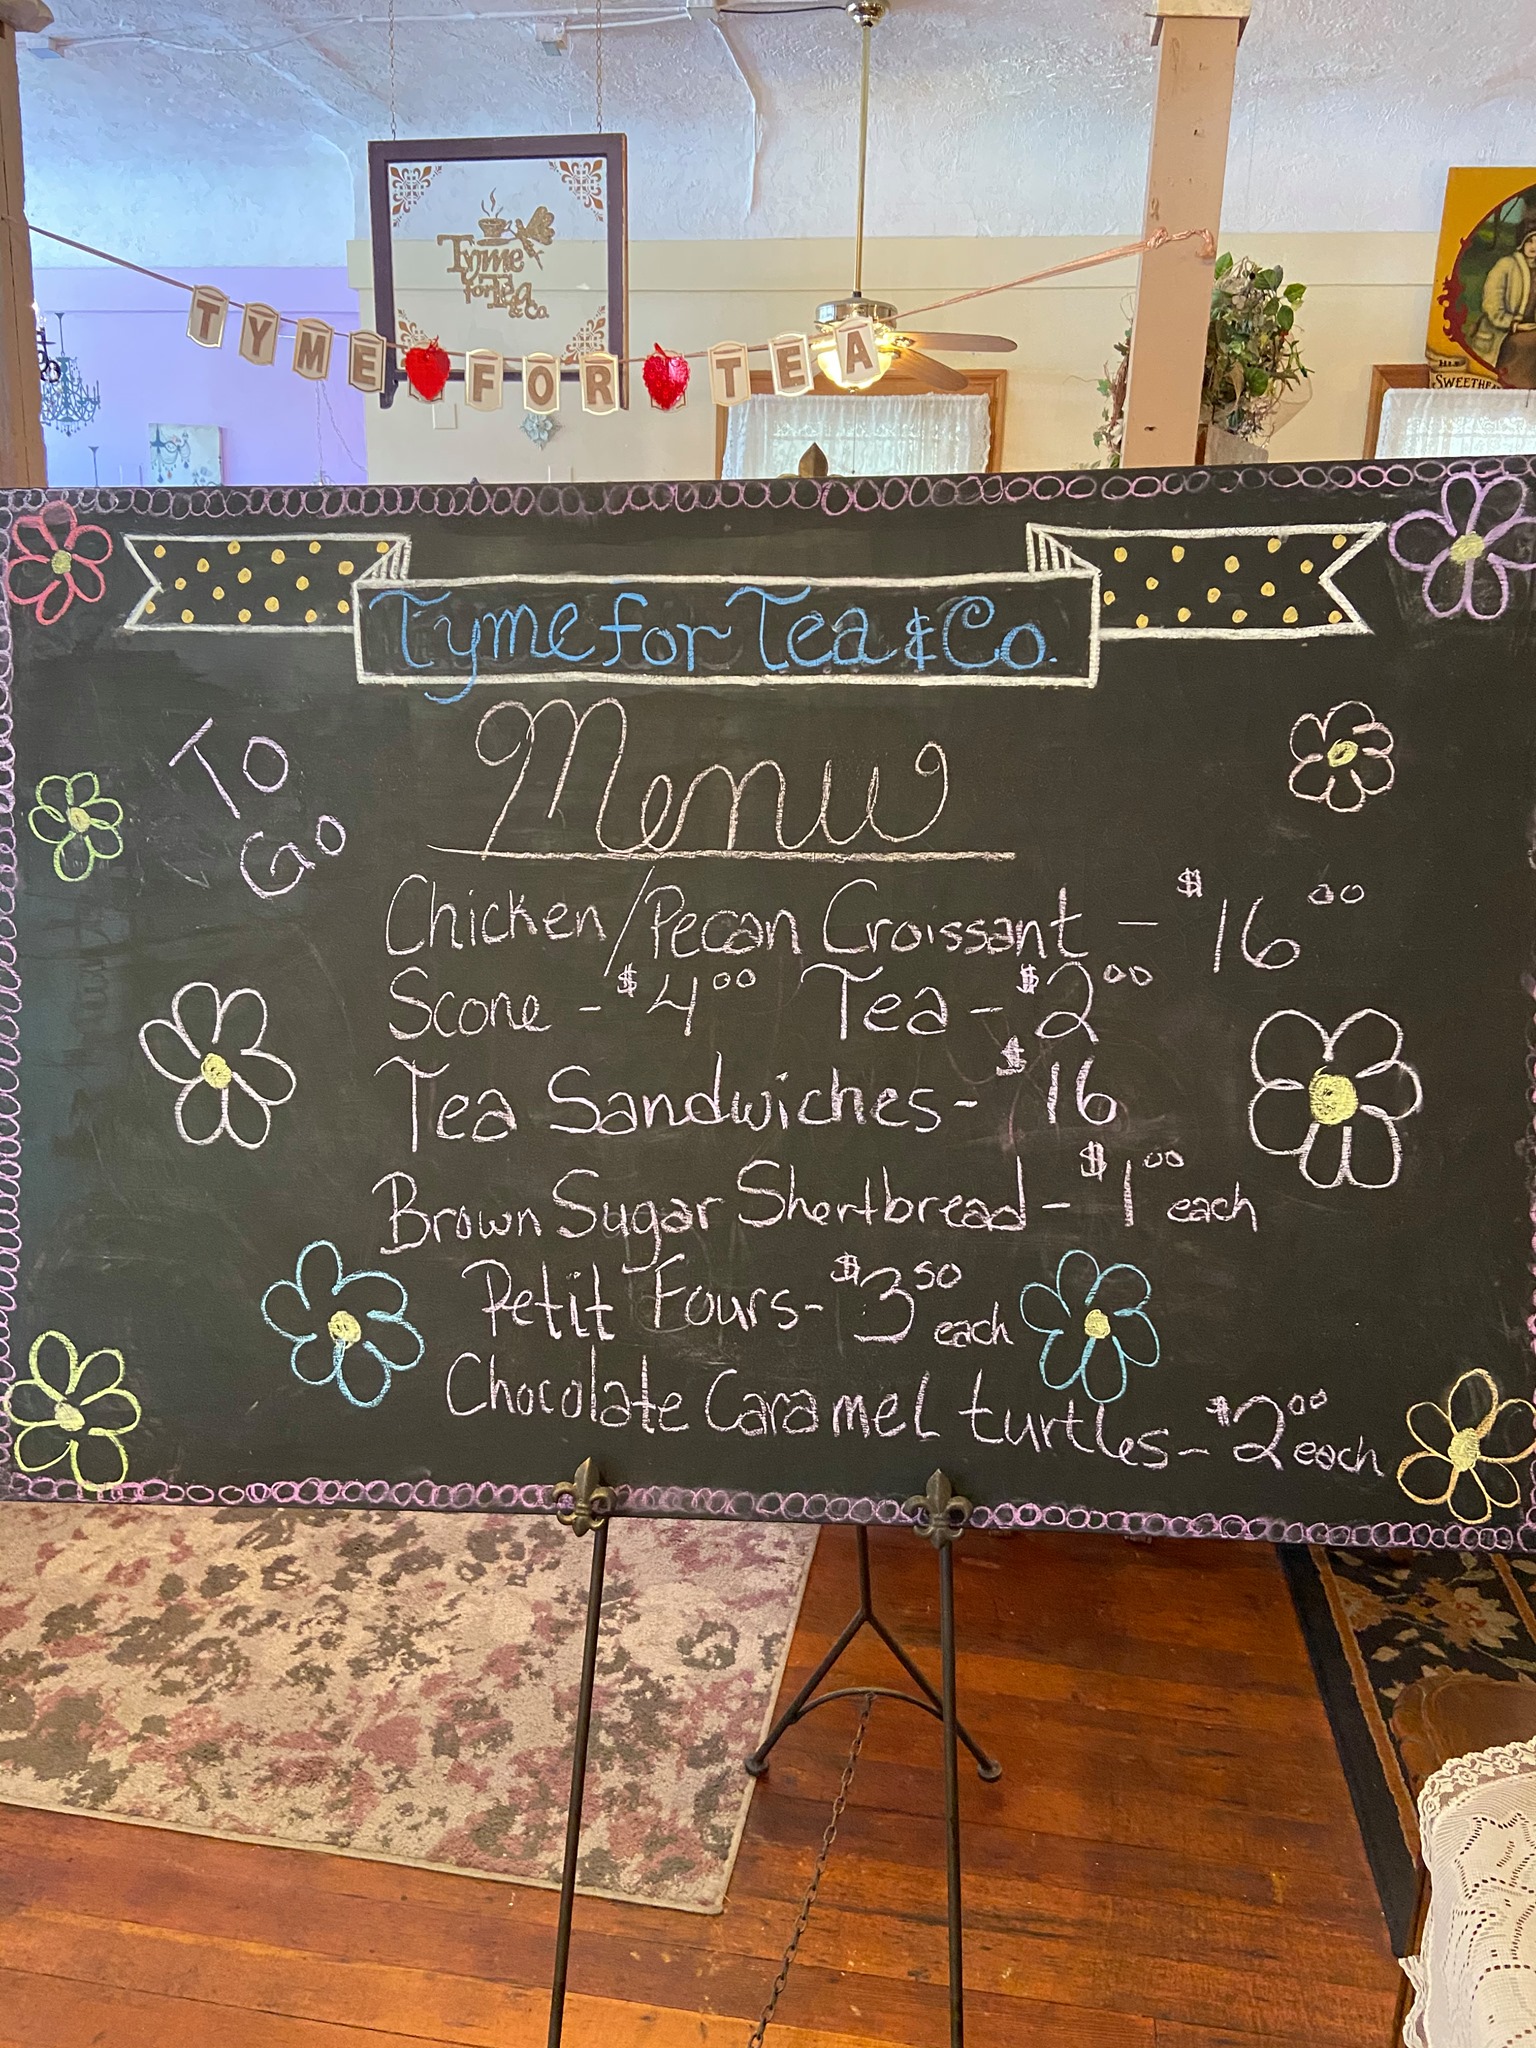 Tyme
for Tea
& Co.
TYME FOR TEA
SWEETHEA
Tyme for Tea & Co.
TO
GO
Menu
Chicken/Pecan Croissant - $16 00
Scone - $4 00 Tea - $2 00
Tea Sandwiches - $16
Brown Sugar Shortbread - $1 00 each
Petit Fours - $3 50 each
Chocolate Caramel turtles - $2 00 each